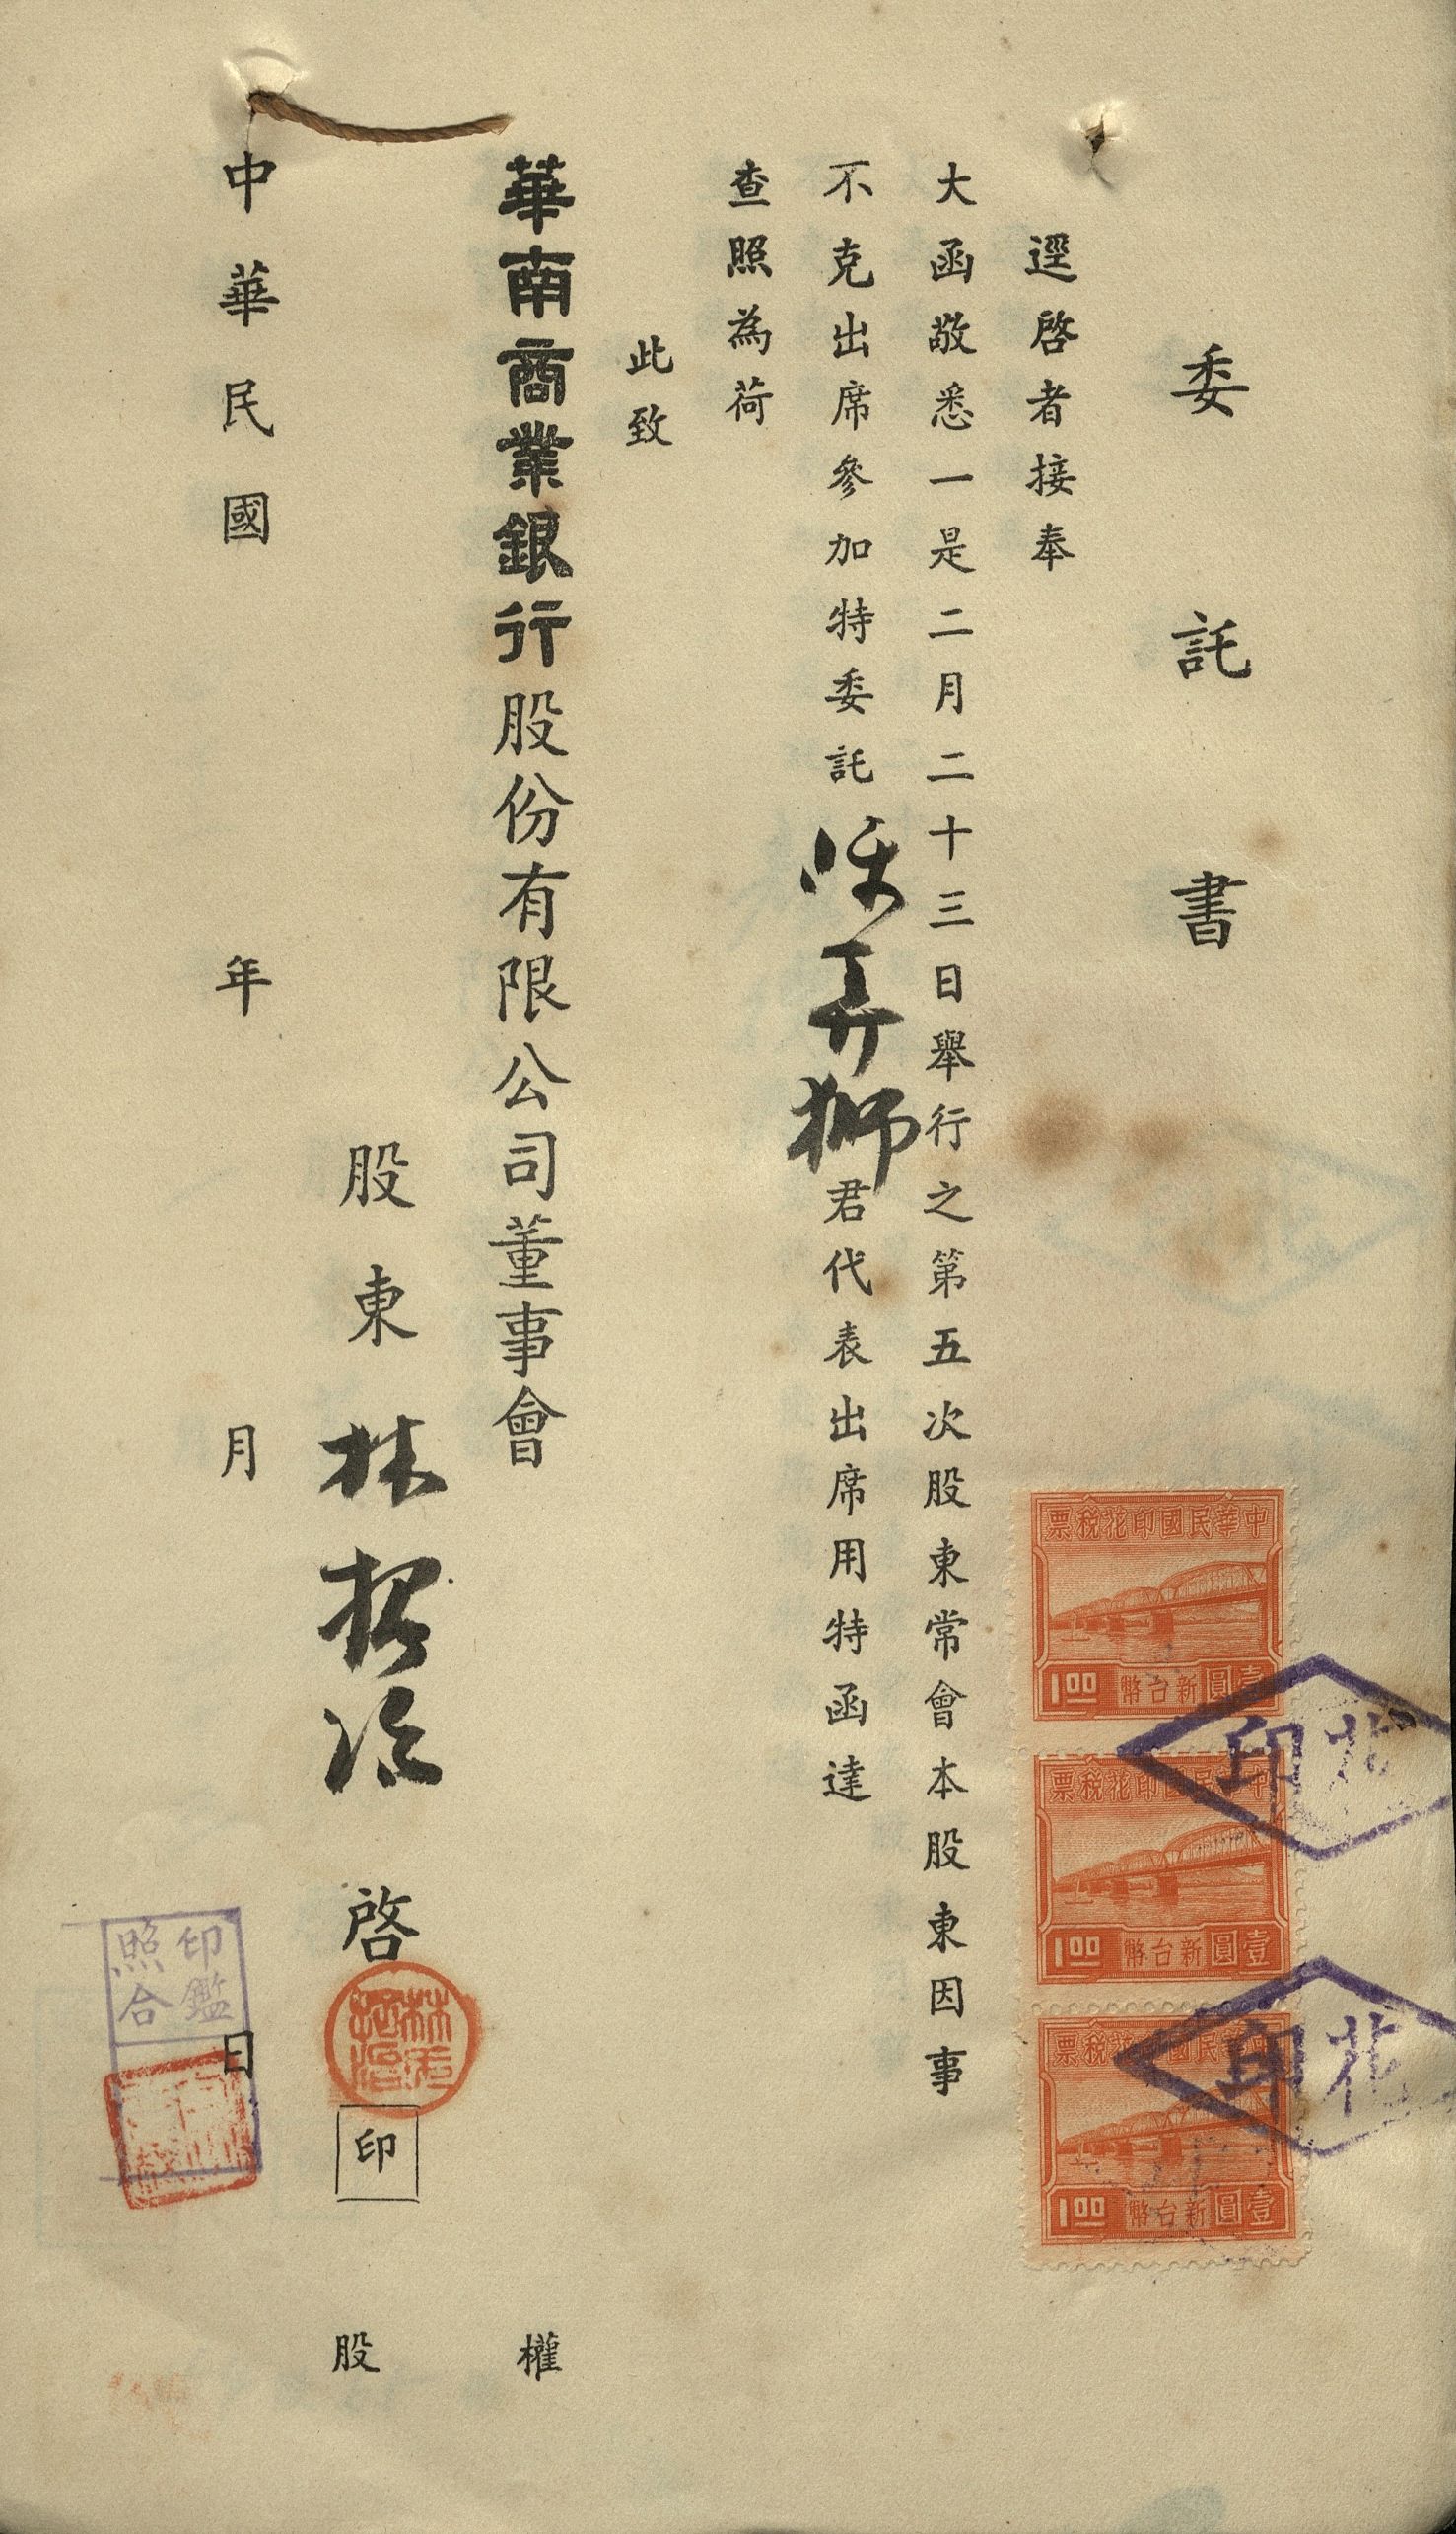 委託書
逕啓者接奉
大函敬悉一是二月二十三日舉行之第五次股東常會本股東因事
不克出席參加特委託 弄獅君代表出席用特函達
查照為荷
此致
華南商業銀行股份有限公司董事會
股東林招治啓
印
中華民國年月日
權
股
中華民國印花稅票
1.00 新台幣壹圓
中華民國印花稅票
1.00 新台幣壹圓
中華民國印花稅票
1.00 新台幣壹圓
花印
花印
印鑑
照合